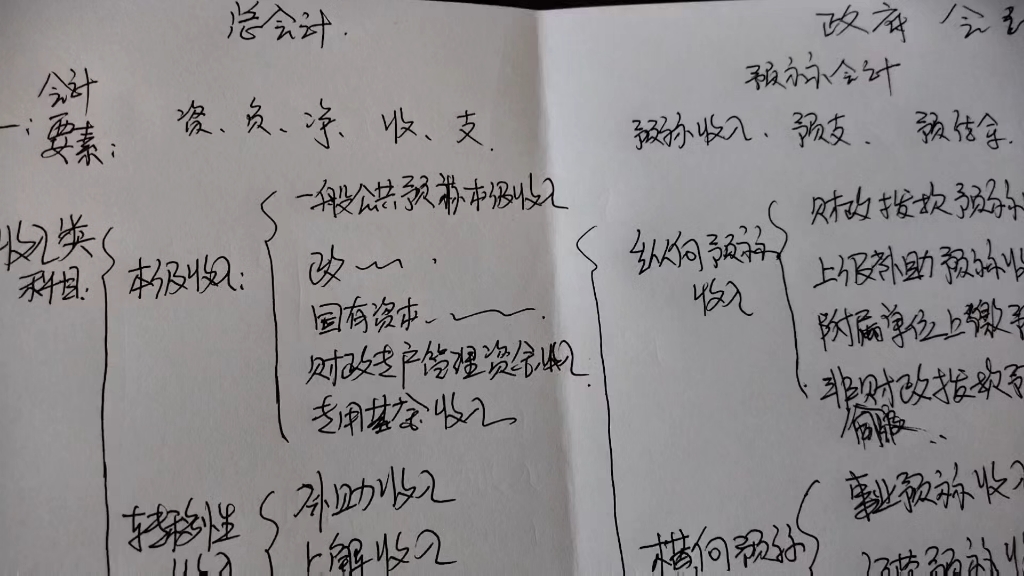 总会计.
政府会计
预算会计
会计
一:要素:
资、负、净、收、支.
预算收入、预支、预结余.
收入类
科目:
本级收入:
一般公共预算本级收入
政
国有资本
财政专户管理资金收入
专用基金收入
转移性
收入
补助收入
上解收入
纵向预算
收入
财政拨款预算
上级补助预算收
附属单位上缴预
非财政拨款预
横向预算
事业预算收入
经营预算收